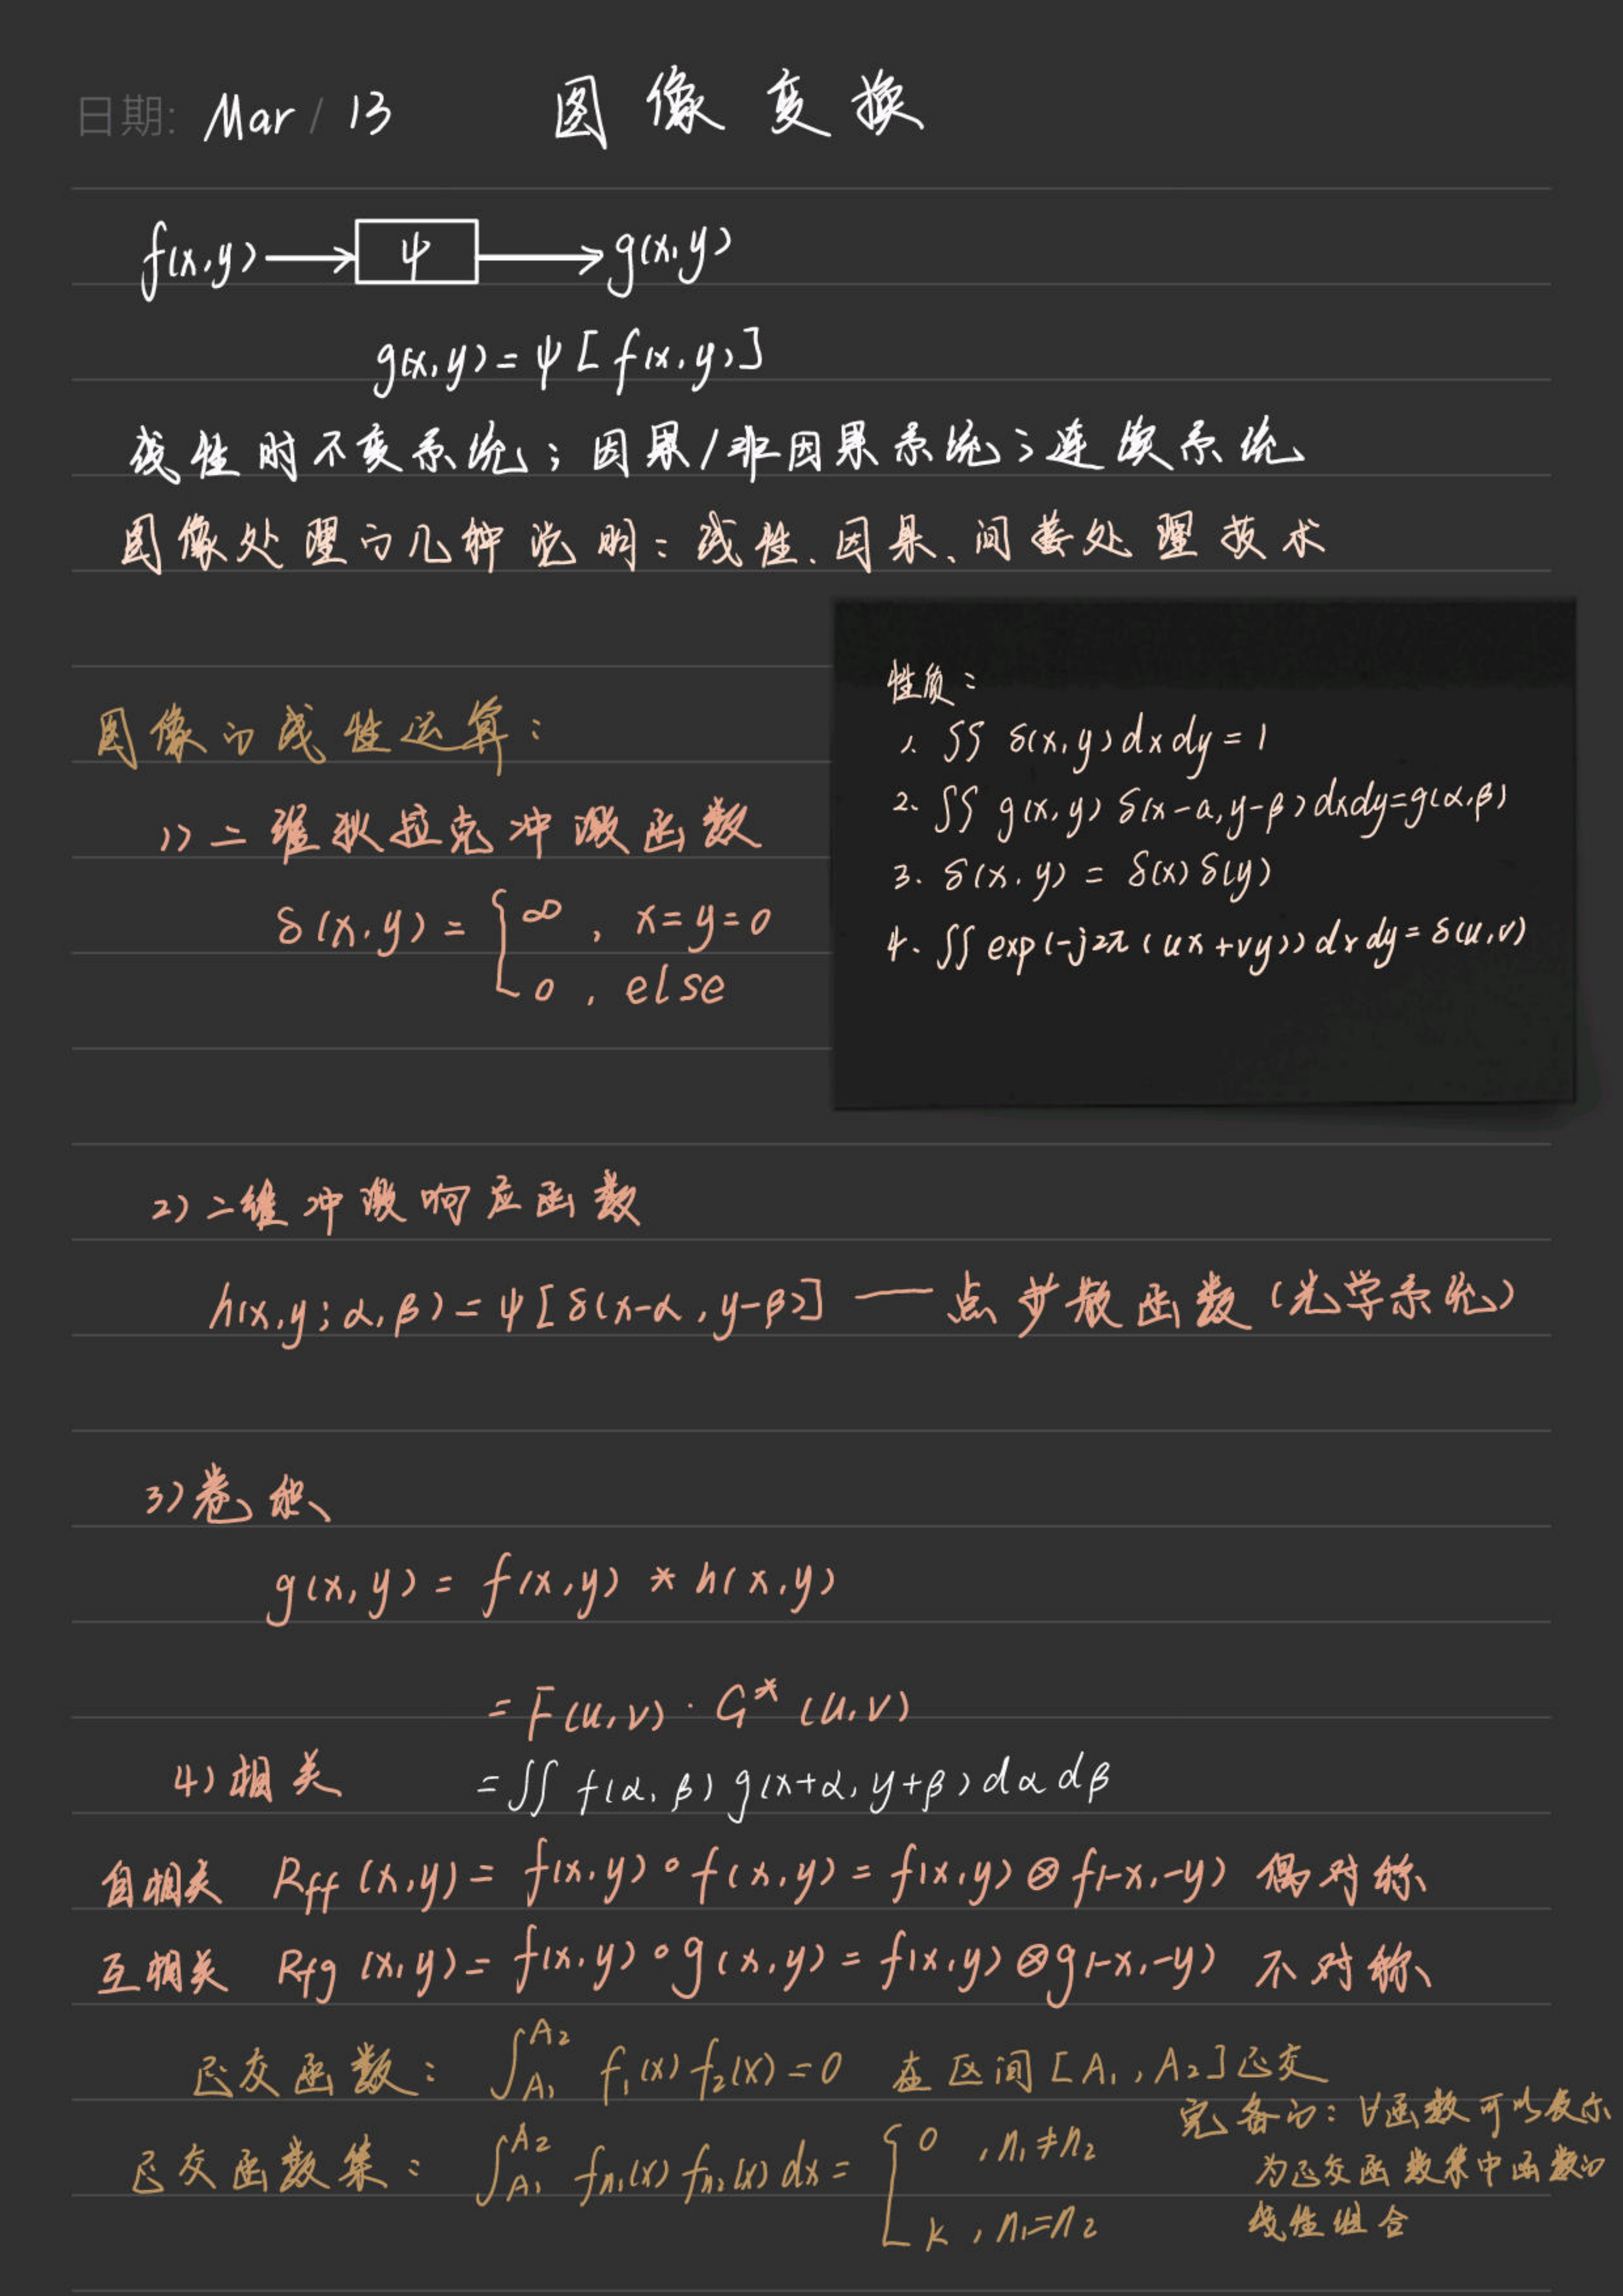 日期: Mar / 13 图像变换
f(x,y) → ψ → g(x,y)
g(x,y) = ψ [ f(x,y) ]
线性时不变系统；因果/非因果系统；连续系统
图像处理的几种说明：线性、因果、间接处理技术
图像的线性运算：
1) 二维狄拉克冲激函数
δ(x,y) = { ∞ , x=y=0
0 , else
性质：
1. ∫∫ δ(x,y) dx dy = 1
2. ∫∫ g(x,y) δ(x-a, y-β) dxdy = g(α,β)
3. δ(x,y) = δ(x) δ(y)
4. ∫∫ exp(-j2π(ux+vy)) dx dy = δ(u,v)
2) 二维冲激响应函数
h(x,y; α,β) = ψ [ δ(x-α, y-β) ] —— 点扩散函数（光学系统）
3) 卷积
g(x,y) = f(x,y) * h(x,y)
= F(u,v) · G*(u,v)
4) 相关 = ∫∫ f(α,β) g(x+α, y+β) dα dβ
自相关 Rff (x,y) = f(x,y) ∘ f(x,y) = f(x,y) ⊗ f(-x,-y) 偶对称
互相关 Rfg (x,y) = f(x,y) ∘ g(x,y) = f(x,y) ⊗ g(-x,-y) 不对称
正交函数： ∫_{A₁}^{A₂} f₁(x) f₂(x) = 0 在区间 [A₁, A₂] 正交
正交函数集： ∫_{A₁}^{A₂} fn₁(x) fn₂(x) dx = { 0 , n₁≠n₂
k , n₁=n₂
完备的：∀函数可以表示
为正交函数集中函数的
线性组合